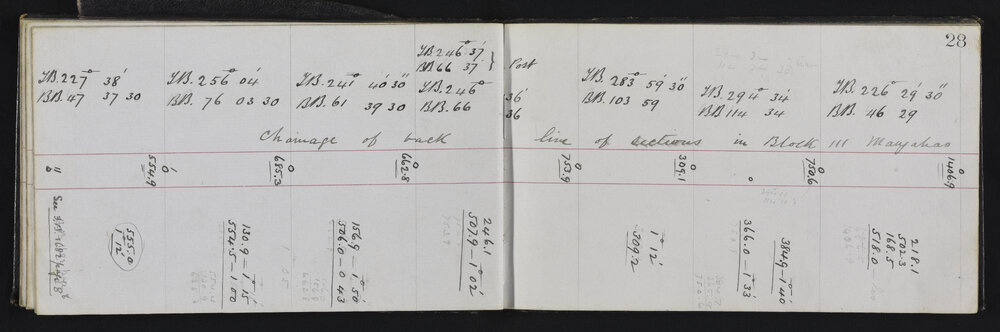 28
F.B. 246° 37'
B.B. 66 37' } Post
F.B. 227° 38'
B.B. 47 37 30
F.B. 256° 04'
B.B. 76 03 30
F.B. 241° 40' 30"
B.B. 61 39 30
F.B. 246° 36'
B.B. 66 36
F.B. 283° 59' 30"
B.B. 103 59
F.B. 294° 34'
B.B. 114 34
F.B. 226° 29' 30"
B.B. 46 29
Chainage of back line of sections in Block III
0
554.9
0
685.3
0
662.8
0
753.9
0
309.1
0
750.6
0
1406.9
See
555.0
1° 12'
130.9 – 1° 15'
554.5 – 1 00
156.9 – 1° 50'
506.0 0 43
246.1
507.9 – 1° 02'
1° 12'
309.2
384.9 – 1° 40'
366.0 – 1° 33'
218.1
502.3
168.5
518.0